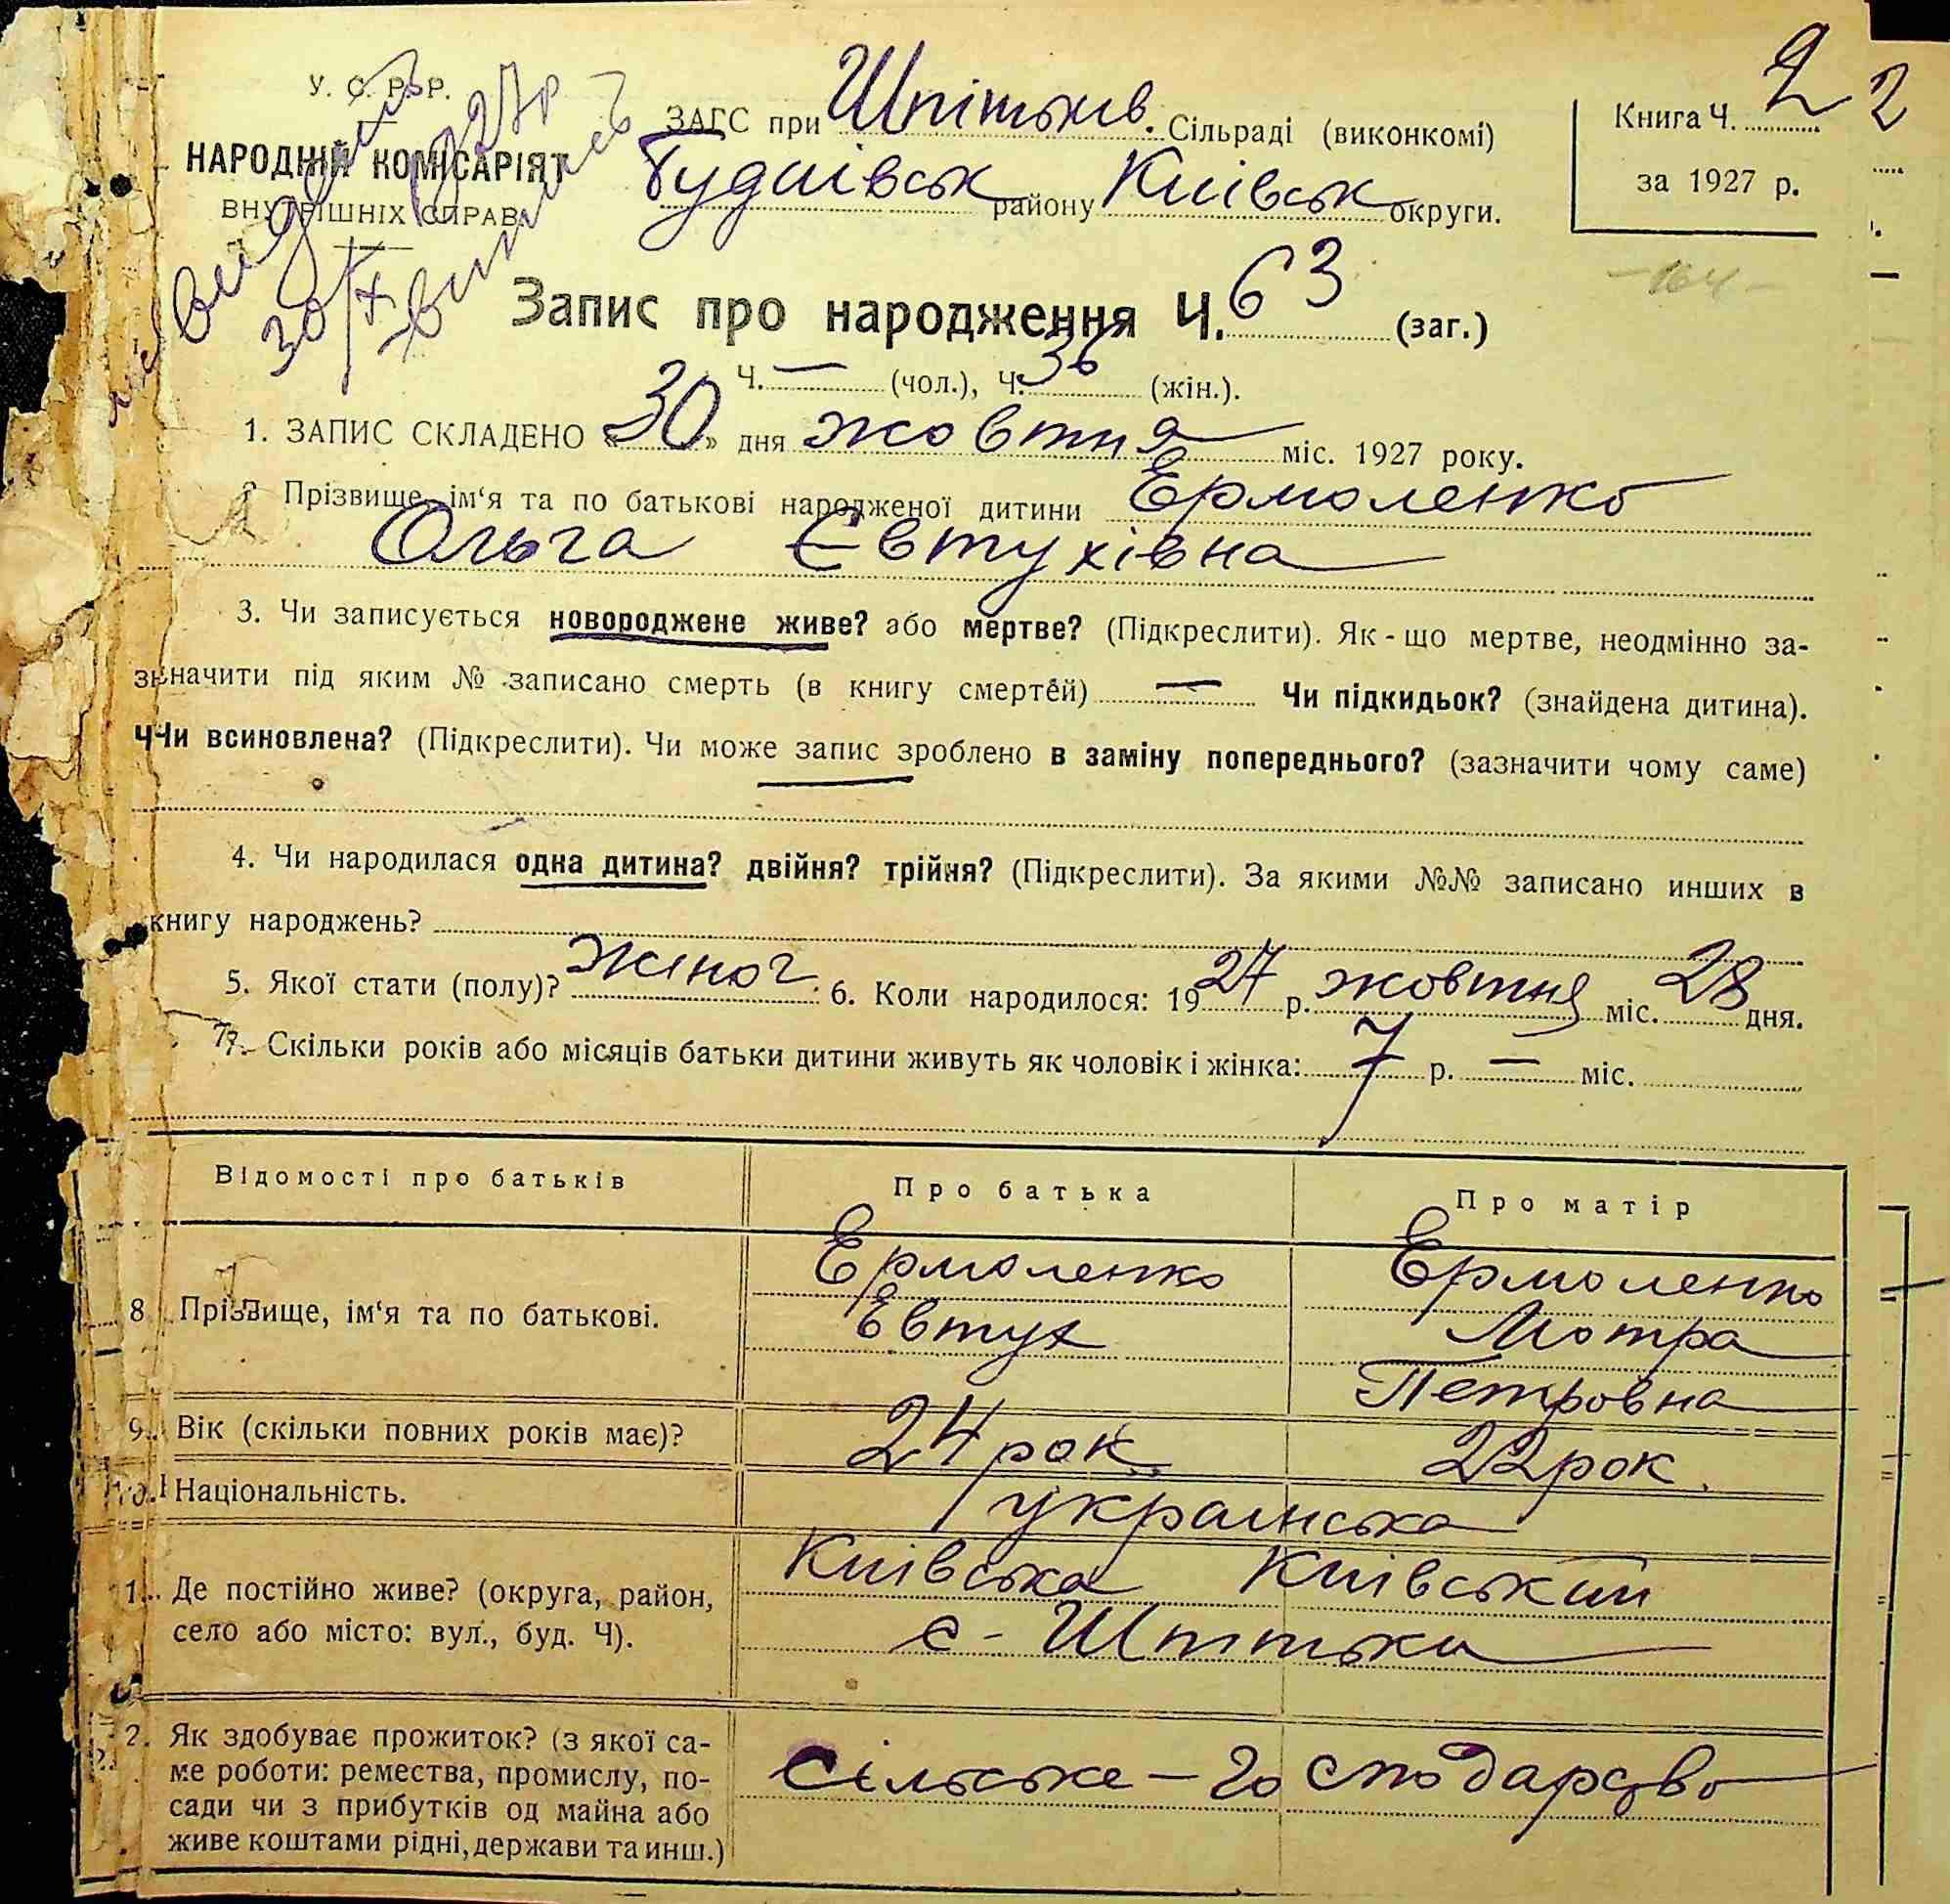 У. С. Р. Р.
НАРОДНІЙ КОМІСАРІЯТ
ВНУТРІШНІХ СПРАВ
30/X
1927 р
ЗАГС при Шпітьків. Сільраді (виконкомі)
Будаівськ району Київськ округи.
Книга Ч. 2
2
за 1927 р.
-164-
Запис про народження Ч. 63 (заг.)
Ч. — (чол.), Ч. 36 (жін.).
1. ЗАПИС СКЛАДЕНО «30» дня жовтня міс. 1927 року.
2. Прізвище, ім‘я та по батькові народженої дитини Ермоленко
Ольга Євтухівна
3. Чи записується новороджене живе? або мертве? (Підкреслити). Як-що мертве, неодмінно за-
значити під яким № записано смерть (в книгу смертей) — Чи підкидьок? (знайдена дитина).
Чи всиновлена? (Підкреслити). Чи може запис зроблено в заміну попереднього? (зазначити чому саме)
4. Чи народилася одна дитина? двійня? трійня? (Підкреслити). За якими №№ записано инших в
книгу народжень?
5. Якої стати (полу)? жіноч. 6. Коли народилося: 1927 р. жовтня міс. 28 дня.
7. Скільки років або місяців батьки дитини живуть як чоловік і жінка: 7 р. — міс.
Відомості про батьків Про батька Про матір
8. Прізвище, ім‘я та по батькові.
Ермоленко Ермоленко
Евтух Мотра
Петровна
9. Вік (скільки повних років має)? 24 рок. 22 рок.
Національність. українська
Де постійно живе? (округа, район,
село або місто: вул., буд. Ч).
Київська Київський
с- Шпітьки
2. Як здобуває прожиток? (з якої са-
ме роботи: ремества, промислу, по-
сади чи з прибутків од майна або
живе коштами рідні, держави та инш.)
Сільське-господарсво